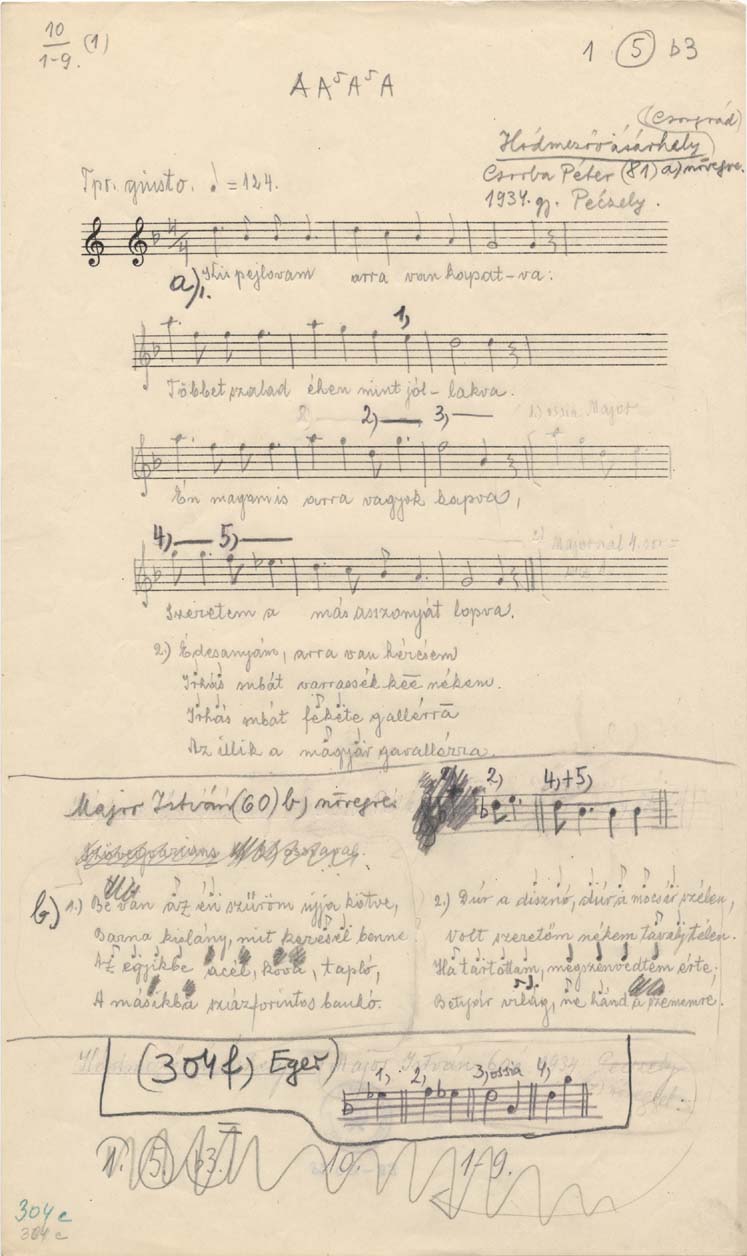 10
1-9. (1)
1 (5) b3
A A⁵ A⁵ A
(Csongrád)
Hódmezővásárhely
Csorba Péter (81) a) növegre.
1934. gy. Péczely.
Tpr. giusto. ♩ = 124.
4/4
a) 1. Kis pejlovam arra van kapat-va:
1,
Többet szalad éhen mint jól-lakva.
2) 3)
1.) ossia Major
Én magam is arra vagyok kapva,
4) 5)
2) Majornál 4. sor =
Szeretem a más asszonyát lopva.
2.) Édesanyám, arra van kérésem
Irhás subát varrassék kee nékem.
Irhás subát fekete gallérra
Az illik a magyar gavallérra.
Major István (60) b) növegre.
2, 4,+5,
b) 1.) Be van az én szűröm ujja kötve,
Barna kislány, mit keresel benne
Az egyikbe acél, kova, tapló,
A másikba százforintos bankó.
2.) Dúr a disznó, dúr a mocsár szélen,
Volt szeretőm nékem tavaly télen.
Ha tartottam, megszenvedtem érte;
Betyár világ, ne hánd a szememre.
Major István 1934 Péczely
(304f) Eger)
1, 2, 3, ossia 4,
1. (5) b3. 10. 1-9.
304 c
304 c